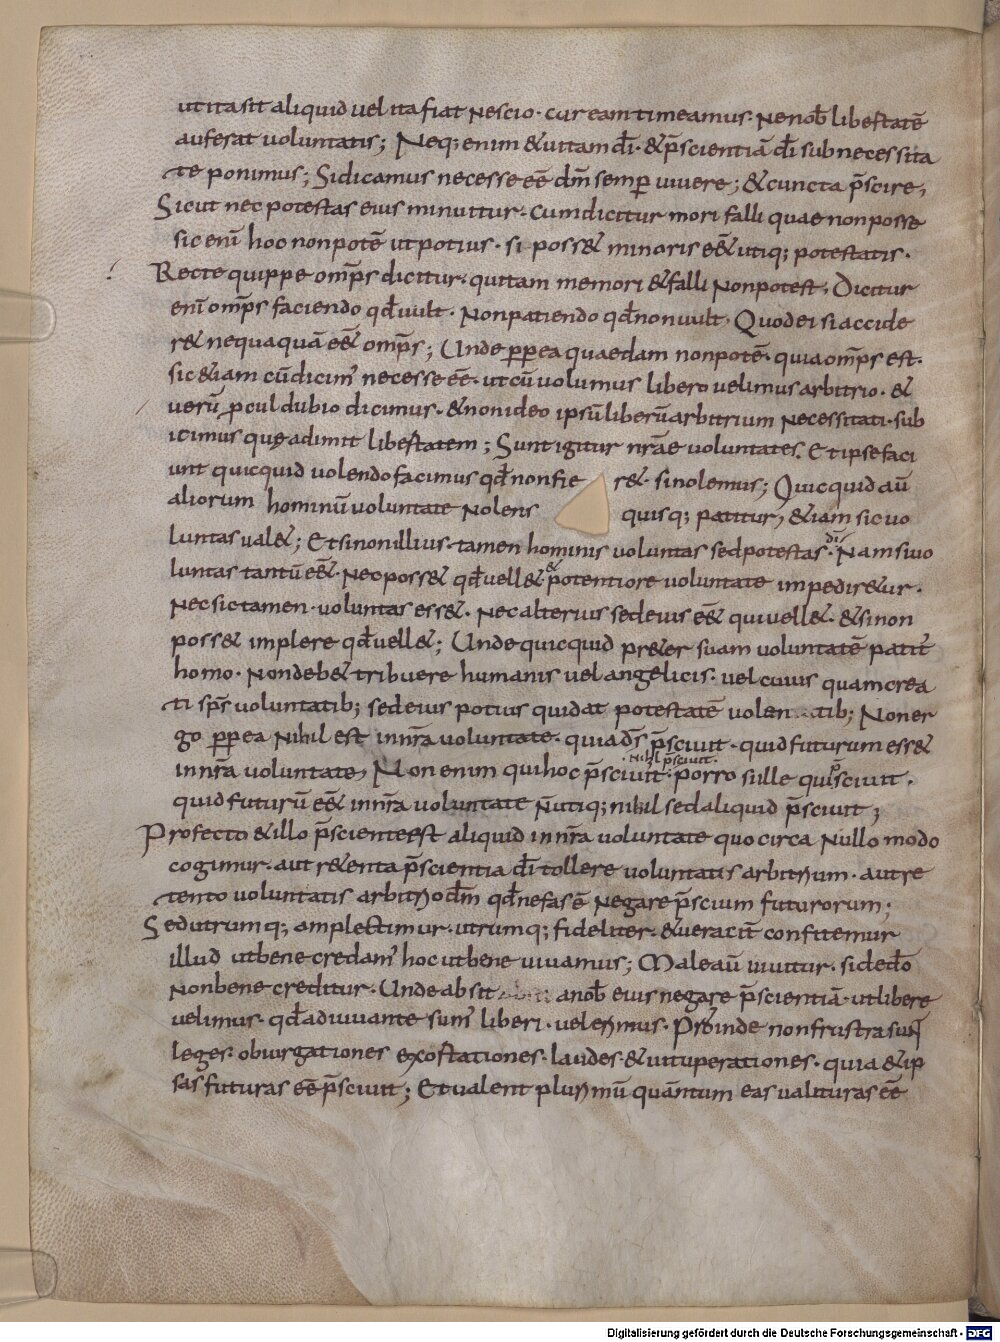 ut ita sit aliquid vel ita fiat nescio · cur eam timeamus · ne nob̄ libertatē
auferat voluntatis ; Neq; enim & vitam dī · & p̄scientiā dī sub necessita
te ponimus ; Si dicamus necesse eē dm̄ semꝑ vivere ; & cuncta p̄scire ,
Sicut nec potestas eius minuitur · cum dicitur mori falli quae non posse
sic enī hoc non potē ut potius · si poss& minoris eē& utiq; potestatis ·
Recte quippe omp̄s dicitur · qui tam & mori & falli non potest , Dicitur
enī omp̄s faciendo qđ vult · Non patiendo qđ non vult · Quod ei si accide
r& nequaquā eē& omp̄s ; Unde ꝓpꝑ ea quaedam non potē · quia omp̄s est ·
sic &iam cū dicim̄ necesse eē · ut cū volumus libero velimus arbitrio · &
verū ꝓcul dubio dicimus · & non ideo ipsū liberū arbitrium necessitati · sub
icimus quę adimit libertatem ; Sunt igitur nr̄ae voluntates . Et ipse faci
unt quicquid volendo facimus qđ non fie r& · si nolemus ; Quicquid aū
aliorum hominū voluntate nolens quisq; patitur , &iam sic vo
luntas val& ; Et si non illius · tamen hominis voluntas sed potestas · dī Nam si vo
luntas tantū eē& · Nec poss& qđ vell& & potentiore voluntate impedir&ur ·
Nec sic tamen · voluntas ess& · Nec alterius sed eius eē& qui vell& · & si non
poss& implere qđ vell& ; Unde quicquid pr&er suam voluntatē patit̄
homo · Non deb& tribuere humanis vel angelicis · vel cuius quam crea
ti sp̄s voluntatib; sed eius potius qui dat potestatē volen tib; Non er
go ꝓpꝑ ea nihil est in nr̄a voluntate · quia d̄s p̄scivit · quid futurum ess&
nihil p̄scivit ·
in nr̄a voluntate , Non enim qui hoc p̄scivit · porro si ille qui p̄scivit ·
quid futurū eē& in nr̄a voluntate n̄ utiq; nihil sed aliquid p̄scivit ;
Profecto & illo p̄sciente est aliquid in nr̄a voluntate quo circa nullo modo
cogimur · aut r&enta p̄scientia dī tollere voluntatis arbitrium · aut re
tento voluntatis arbitrio dm̄ qđ nefas ē negare p̄scium futurorum ;
Sed utrumq; amplectimur · utrumq; fideliter · & veracit̄ confitemur
illud ut bene credam̄ hoc ut bene vivamus ; Male aū vivitur · si de dō
non bene creditur · Unde absit a nob̄ eius negare p̄scientiā · ut libere
velimus · qđ adiuvante sum̄ liberi · vel erimus · Proinde non frustra sunt
leges · obiurgationes exortationes · laudes · & vituperationes · quia & ip
sas futuras eē p̄scivit ; Et valent plurimū quantum eas valituras eē